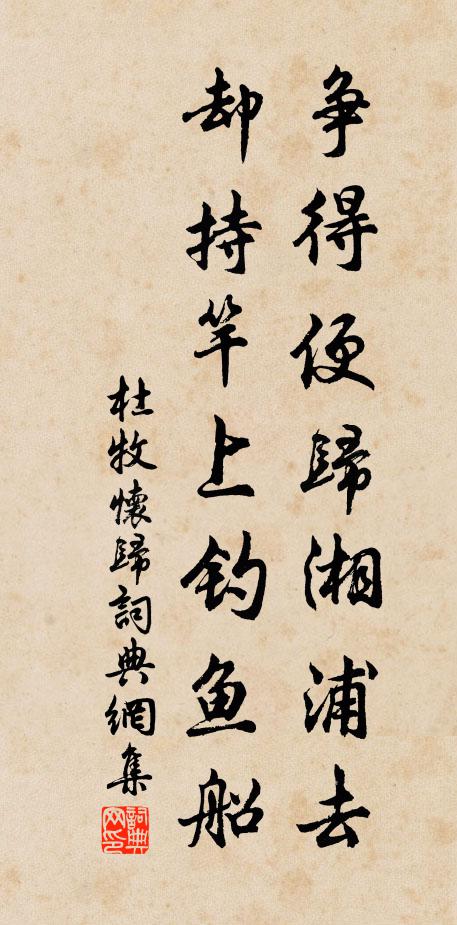 争得便歸湘浦去
却持竿上钓鱼船
杜牧懷歸詞典網集
詞典网印